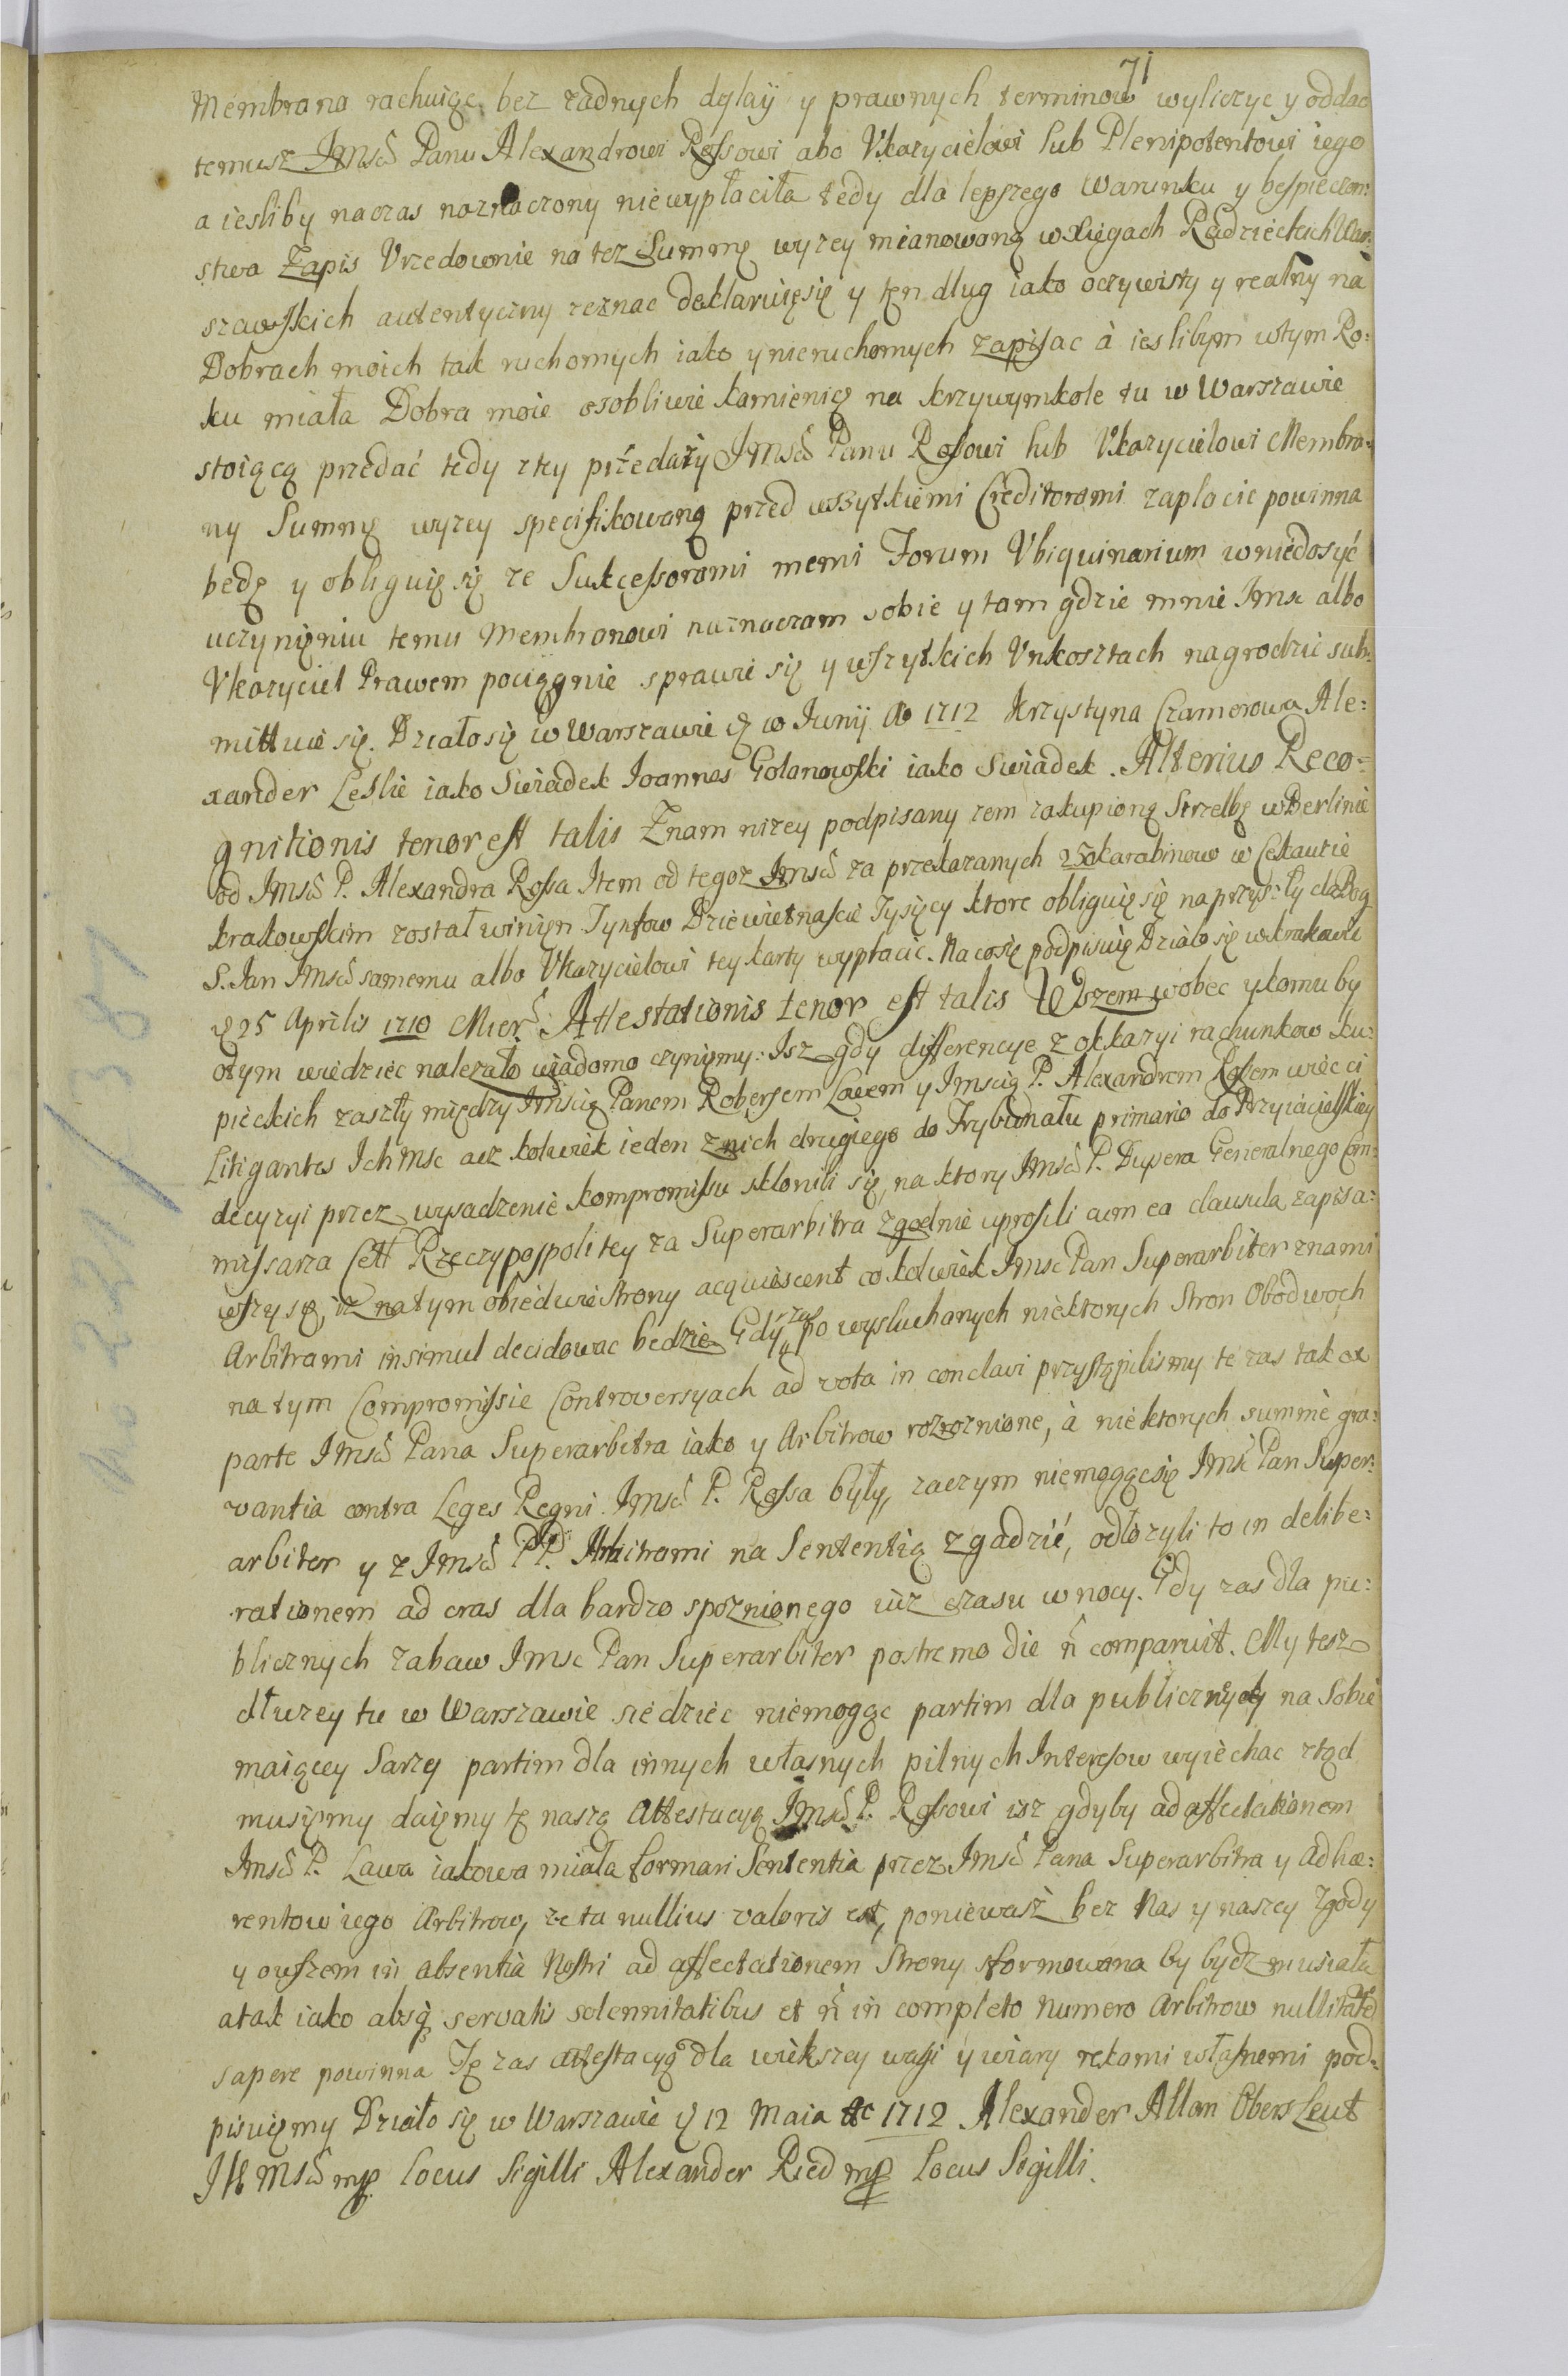 71
Membrana rachuiąc bez zadnych dylaÿ y prawnych terminow wyliczyc y oddac
temusz Jmsci Panu Alexandrowi Rossowi abo Vkazycielowi lub Plenipotentowi iego
a iesliby naczas naznaczony niewypłaciła tedy dla lepszego Warunku y bespieczen:
stwa Zapis Vrzedownie na tez Summę wyzey mianowaną wXięgach Radzieckich War:
szawskich autentyczny zeznac deklaruięsię y ten dlug iako oczywisty y realny na
Dobrach moich tak ruchomych iako y nieruchomych zapisac à ieslibym wtym Ro:
ku miała Dobra moie osobliwie kamienicę na krzywymkole tu w Warszawie
stoiącą przedać tedy ztey przedaży Jmsci Panu Rossowi lub Vkazycielowi Membra:
ny Summę wyzey specifikowaną przed wszytkiemi Creditorami zaplacic powinna
będę y obliguię się ze Sukcessorami memi Forum Vbiquinarium wniedosyć
uczynieniu temu Membranowi naznaczam sobie y tam gdzie mnie Jmsc albo
Vkazyciel Prawem pociągnie sprawic się y wszytkich Vnkosztach nagrodzic sub:
mittuie się. Działosię w Warszawie d w Junij Ao 1712 Krzystyna Czamerowa Ale:
xander Leslie iako Swiadek Joannes Golanowski iako Swiadek. Alterius Reco:
gnitionis tenor est talis Znam nizey podpisany zem zakupioną Strzelbę wBerlinie
od Jmsci P. Alexandra Rossa Item od tegoz Jmsci za przekazanych 250 karabinow w Cekauzie
krakowskim został winien Tynfow Dziewietnascie Tysięcy ktore obliguię się naprzyszły da Bog
S. Jan Jmsci samemu albo Vkazycielowi tey karty wypłacic. Nacosię podpisuię Działo się wkrakowie
d 25 Aprilis 1710 Mier. Attestationis tenor est talis Wszem wobec ykomu by
otym wiedziec nalezało wiadomo czyniemy: Isz gdy differencye z okkazyi rachunkow ku:
pieckich zaszły między Jmscią Panem Robersem Lawem y Jmscią P. Alexandrem Rossem więc ci
Litigantes Ich Msc acz kolwiek ieden z nich drugiego do Trybunału primario do Przyiacielskiey
decyzyi przez wysadzenie kompromissu sklonili się, na ktory Jmsci P. Dupera Generalnego Com:
missarza Cett Rzeczypospolitey za Superarbitra zgodnie uprosili cum ea clausula zapisa:
wszy się, iz na tym obiedwie strony acquiescent cokolwiek Jmsc Pan Superarbiter znami
Arbitrami insimul decidowac bedzie Gdy zas po wysluchanych niektorych Stron Obodwoch
na tym Compromissie Controversyach ad vota in conclavi przystąpilismy te zas tak ex
parte Jmsci Pana Superarbitra iako y Arbitrow rozroznione, à niektorych summè gra:
vantia contra Leges Regni Jmsci P. Rossa były, zaczym niemogącsię Jmsc Pan Super:
arbiter y z Jmsci PP. Arbitrami na Sententią zgadzić, odłozyli to in delibe:
rationem ad cras dla bardzo spoznionego iuz czasu w nocy. Gdy zas dla pu:
blicznych zabaw Jmsc Pan Superarbiter postremo die ñ comparuit. My tesz
dłuzey tu w Warszawie siedziec niemogąc partim dla publiczney na Sobie
maiącey Sarzy partim dla innych własnych pilnych Interesow wyiechac ztąd
musiemy daiemy tę naszę Attestacyą Jmsci P. Rossowi isz gdyby ad affectationem
Jmsci P. Lawa iakowa miała formari Sententia przez Jmsci Pana Superarbitra y Adhæ:
rentow iego Arbitrow, ze ta nullius valoris est, poniewasz bez Nas y naszey Zgody
y owszem in absentia Nostri ad affectationem Strony sformowana by bydz musiała
atak iako absq servatis solennitatibus et ñ in completo Numero Arbitrow nullitatem
sapere powinna Tę zas attestacyą dla większey wagi y wiary rękami własnemi pod:
pisuiemy Działo się w Warszawie d 12 Maia Ao 1712 Alexander Allan Obers Leut
JKMsci mp Locus Sigilli Alexander Ried mp Locus Sigilli.